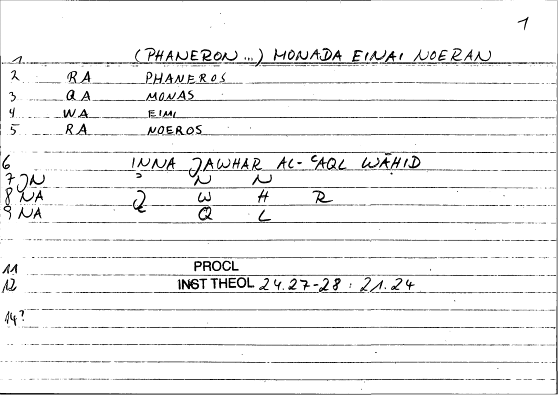 1
1 (PHANERON ...) MONADA EINAI NOERAN
2 RA PHANEROS
3 QA MONAS
4 WA EIMI
5 RA NOEROS
6 INNA JAWHAR AL-ʿAQL WĀḤID
7 JN ʾ N N
8 NA J W H R
9 NA ʿ Q L
11 PROCL
12 INST THEOL 24.27-28 : 21.24
14?